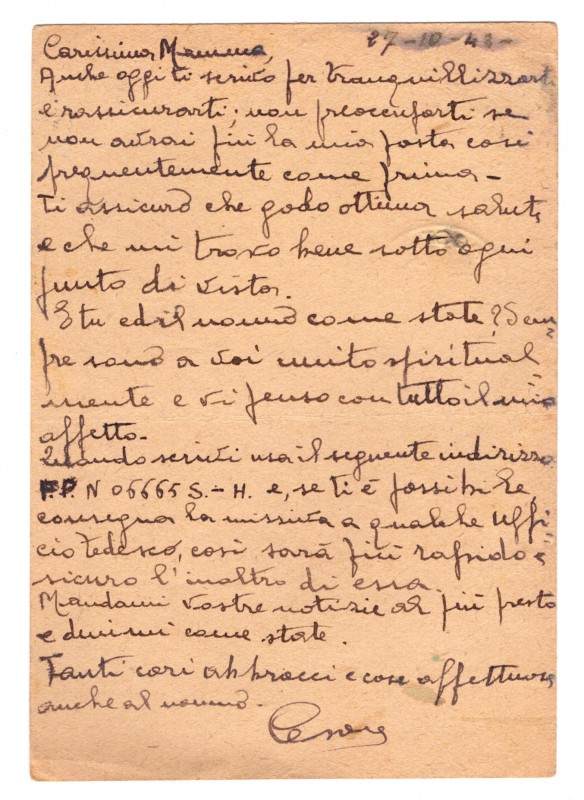 27-10-43-
Carissima Mamma,
Anche oggi ti scrivo per tranquillizzarti
e rassicurarti; non preoccuparti se
non avrai più la mia posta così
frequentemente come prima -
ti assicuro che godo ottima salute,
e che mi trovo bene sotto ogni
punto di vista.
E tu ed il nonno come state? Sem=
pre sono a voi unito spiritual=
mente e vi penso con tutto il mio
affetto.-
Quando scrivi usa il seguente indirizzo
F.P. N 06665 S.-H. e, se ti è possibile,
consegna la missiva a qualche uffi=
cio tedesco, così sarà più rapido e
sicuro l'inoltro di essa.
Mandami vostre notizie al più presto
e dimmi come state.
Tanti cari abbracci e cose affettuose
anche al nonno.
Cesare